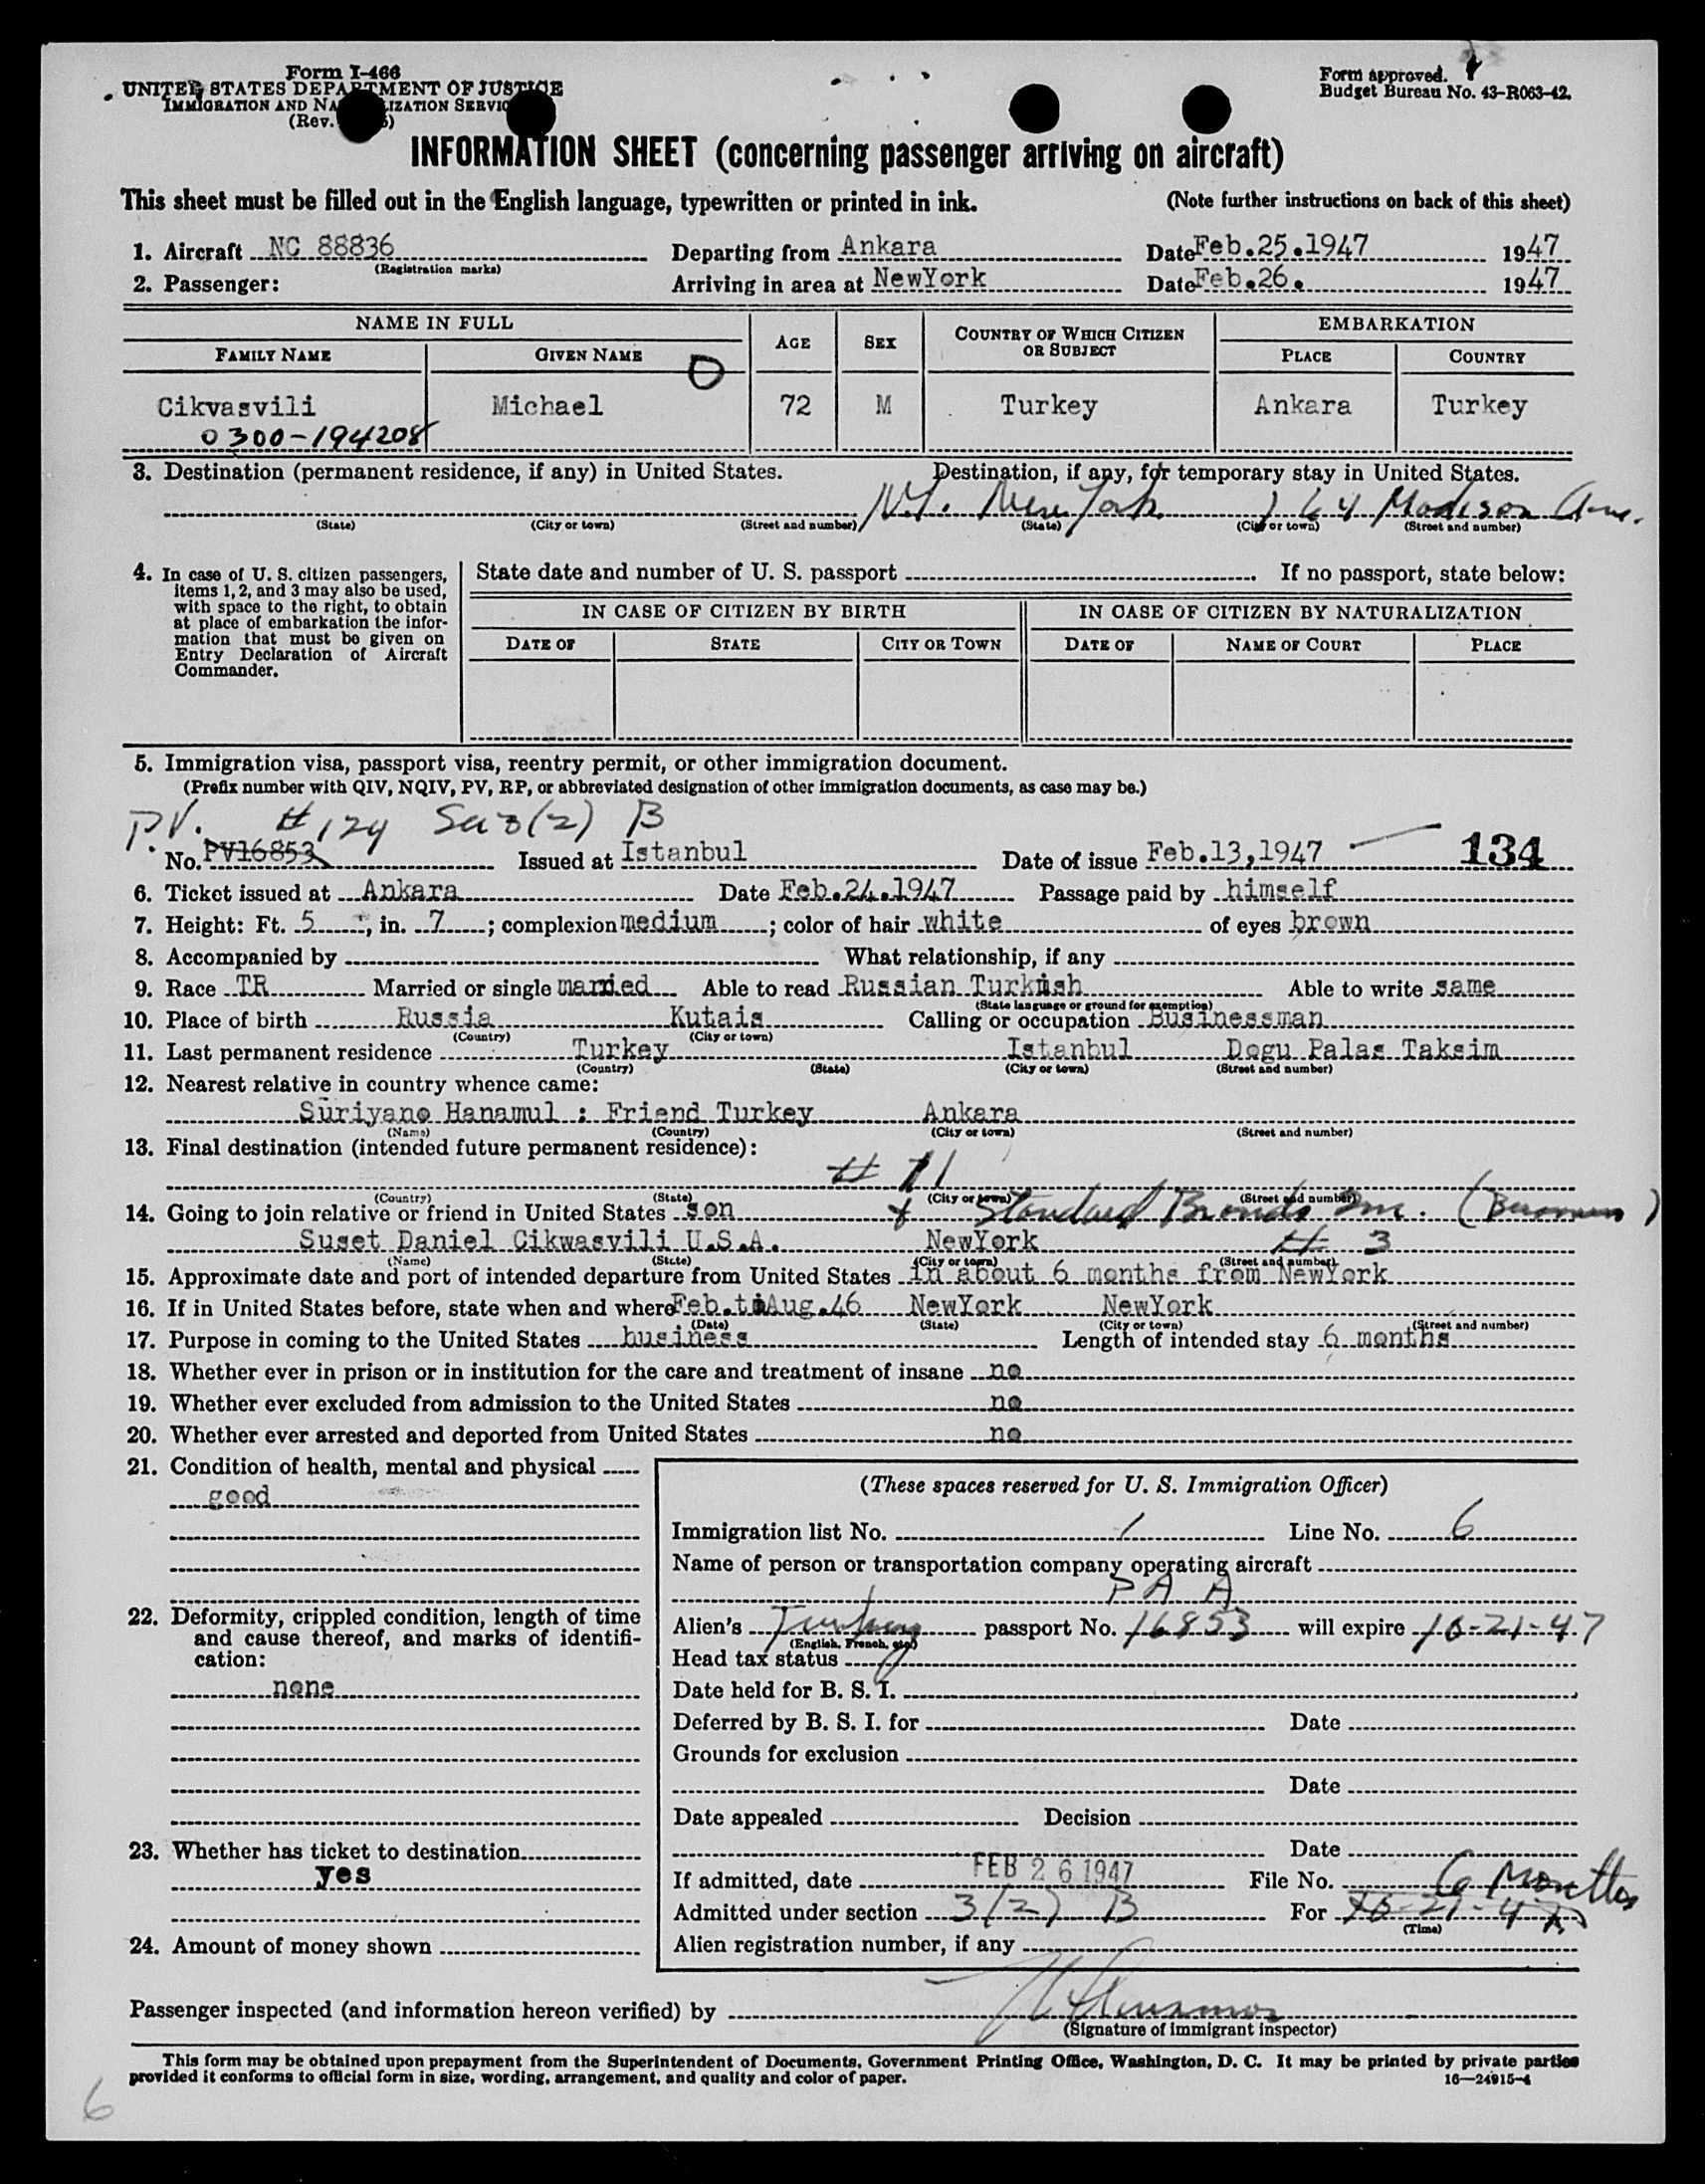 Form I-466
UNITED STATES DEPARTMENT OF JUSTICE
IMMIGRATION AND NA IZATION SERVIC
(Rev. )
Form approved.
Budget Bureau No. 43-R063-42.
INFORMATION SHEET (concerning passenger arriving on aircraft)
This sheet must be filled out in the English language, typewritten or printed in ink. (Note further instructions on back of this sheet)
1. Aircraft NC 88836 Departing from Ankara Date Feb.25.1947 1947
(Registration marks)
2. Passenger: Arriving in area at NewYork Date Feb.26. 1947
NAME IN FULL AGE SEX COUNTRY OF WHICH CITIZEN OR SUBJECT EMBARKATION
FAMILY NAME GIVEN NAME PLACE COUNTRY
Cikvasvili Michael 72 M Turkey Ankara Turkey
0300-194208
3. Destination (permanent residence, if any) in United States. Destination, if any, for temporary stay in United States.
N.Y. New York 164 Madison Ave.
(State) (City or town) (Street and number) (State) (City or town) (Street and number)
4. In case of U. S. citizen passengers, items 1, 2, and 3 may also be used, with space to the right, to obtain at place of embarkation the information that must be given on Entry Declaration of Aircraft Commander.
State date and number of U. S. passport If no passport, state below:
IN CASE OF CITIZEN BY BIRTH IN CASE OF CITIZEN BY NATURALIZATION
DATE OF STATE CITY OR TOWN DATE OF NAME OF COURT PLACE
5. Immigration visa, passport visa, reentry permit, or other immigration document.
(Prefix number with QIV, NQIV, PV, RP, or abbreviated designation of other immigration documents, as case may be.)
P.V. #124 Sec 3(2) B
No. PV16853 Issued at Istanbul Date of issue Feb.13,1947 134
6. Ticket issued at Ankara Date Feb.24.1947 Passage paid by himself
7. Height: Ft. 5, in. 7; complexion medium; color of hair white of eyes brown
8. Accompanied by What relationship, if any
9. Race TR Married or single married Able to read Russian Turkish Able to write same
(State language or ground for exemption)
10. Place of birth Russia Kutais Calling or occupation Businessman
(Country) (City or town)
11. Last permanent residence Turkey Istanbul Dogu Palas Taksim
(Country) (State) (City or town) (Street and number)
12. Nearest relative in country whence came:
Süriyano Hanamul : Friend Turkey Ankara
(Name) (Country) (City or town) (Street and number)
13. Final destination (intended future permanent residence):
# 11
(Country) (State) (City or town) (Street and number)
14. Going to join relative or friend in United States son + Standard Brands Inc. (Business)
Suset Daniel Cikwasvili U.S.A. NewYork # 3
(Name) (State) (City or town) (Street and number)
15. Approximate date and port of intended departure from United States in about 6 months from NewYork
16. If in United States before, state when and where Feb.to Aug.46 NewYork NewYork
(Date) (State) (City or town) (Street and number)
17. Purpose in coming to the United States business Length of intended stay 6 months
18. Whether ever in prison or in institution for the care and treatment of insane no
19. Whether ever excluded from admission to the United States no
20. Whether ever arrested and deported from United States no
21. Condition of health, mental and physical
good
22. Deformity, crippled condition, length of time and cause thereof, and marks of identification:
none
23. Whether has ticket to destination
yes
24. Amount of money shown
(These spaces reserved for U. S. Immigration Officer)
Immigration list No. 1 Line No. 6
Name of person or transportation company operating aircraft
P A A
Alien's Turkey passport No. 16853 will expire 10-21-47
(English, French, etc.)
Head tax status
Date held for B. S. I.
Deferred by B. S. I. for Date
Grounds for exclusion
Date
Date appealed Decision
Date
If admitted, date FEB 26 1947 File No. 6 Months
Admitted under section 3(2) B For 10-21-47
(Time)
Alien registration number, if any
Passenger inspected (and information hereon verified) by
(Signature of immigrant inspector)
This form may be obtained upon prepayment from the Superintendent of Documents, Government Printing Office, Washington, D. C. It may be printed by private parties
provided it conforms to official form in size, wording, arrangement, and quality and color of paper. 16—24915-4
6